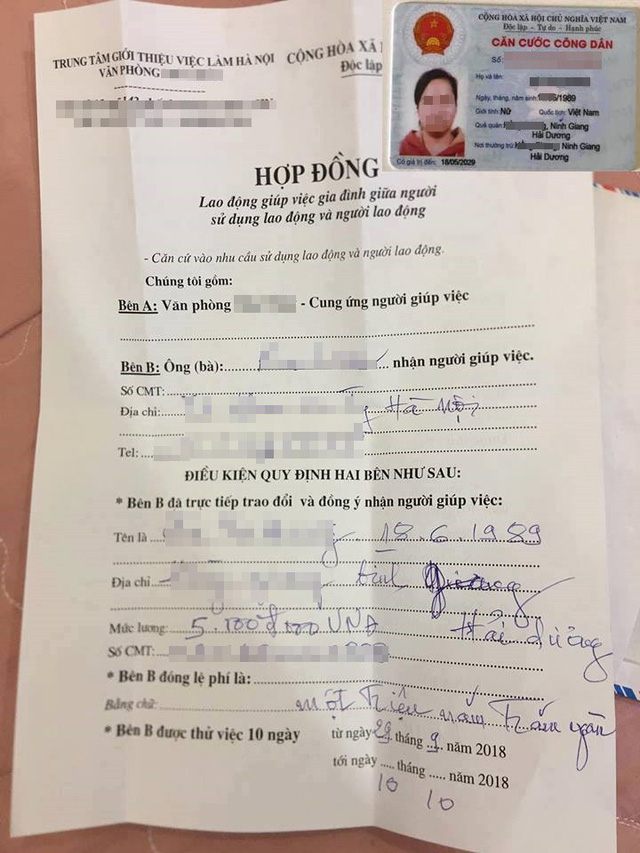 TRUNG TÂM GIỚI THIỆU VIỆC LÀM HÀ NỘI
VĂN PHÒNG
CỘNG HÒA XÃ
Độc lập
CỘNG HÒA XÃ HỘI CHỦ NGHĨA VIỆT NAM
Độc lập - Tự do - Hạnh phúc
CĂN CƯỚC CÔNG DÂN
Số:
Họ và tên:
Ngày, tháng, năm sinh: /1989
Giới tính: Nữ Quốc tịch: Việt Nam
Quê quán: , Ninh Giang
Hải Dương
Nơi thường trú: Ninh Giang
Hải Dương
Có giá trị đến: 18/06/2029
HỢP ĐỒNG
Lao động giúp việc gia đình giữa người
sử dụng lao động và người lao động
- Căn cứ vào nhu cầu sử dụng lao động và người lao động.
Chúng tôi gồm:
Bên A: Văn phòng - Cung ứng người giúp việc
Bên B: Ông (bà):... nhận người giúp việc.
Số CMT:
Địa chỉ: Hà Nội
Tel:
ĐIỀU KIỆN QUY ĐỊNH HAI BÊN NHƯ SAU:
* Bên B đã trực tiếp trao đổi và đồng ý nhận người giúp việc:
Tên là 18.6.1989
Địa chỉ Giang
Mức lương: Hải dương
Số CMT:
* Bên B đóng lệ phí là:
Bằng chữ: một triệu năm trăm
* Bên B được thử việc 10 ngày từ ngày 29 tháng 9 năm 2018
tới ngày ..... tháng ..... năm 2018
10 10